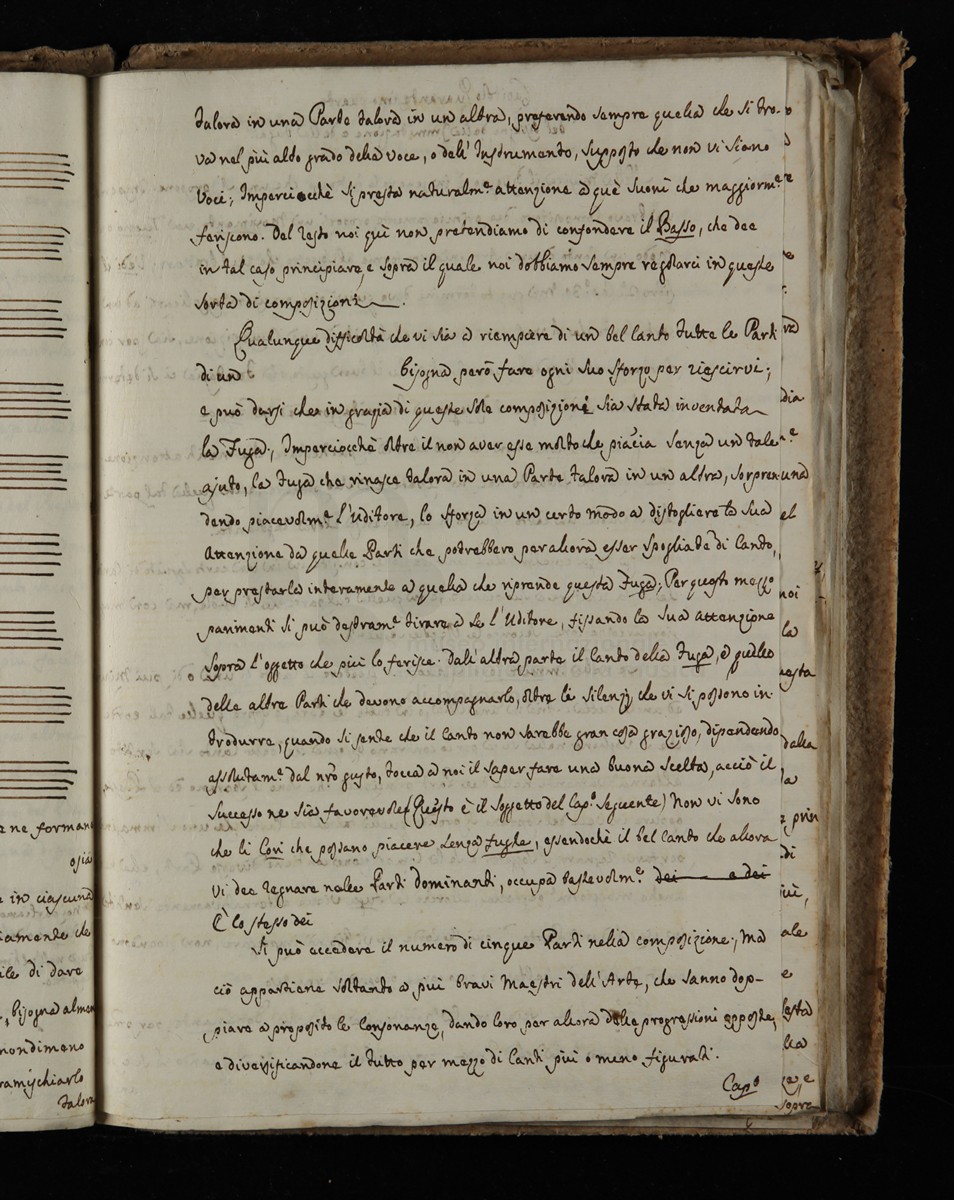 talora in una Parte talora in un altra, preferendo sempre quella che si tro-
va nel più alto grado della voce, o dell' Instrumento, supposto che non vi siano
Voci; Imperciocchè si presta naturalm.e attenzione a què suoni che maggiorm.e
feriscono. Del resto noi quì non pretendiamo di confondere il Basso, che dee
in tal caso principiare e sopra il quale noi dobbiamo sempre regolarci in queste
sorta di composizioni.
Qualunque difficoltà che vi sia a riempiere di un bel canto tutte le Parti
di un bisogna però fare ogni suo sforzo per riescirvi;
e può darsi che in grazia di queste sole composizioni sia stata inventata
la Fuga; Imperciocchè oltre il non aver esse molto che piaccia senza un tale
ajuto, la fuga che rinasce talora in una Parte talora in un altra, sorpren-
dendo piacevolm.e l'Uditore, lo sforza in un certo modo a distogliere la sua
Attenzione da quelle Parti che potrebbero per allora esser spogliate di Canto,
per prestarla interamente a quella che riprende questa Fuga; Per questo mezzo
parimenti si può destram.e tirare a se l'Uditore, fissando la sua attenzione
sopra l'oggetto che più lo ferisce. Dall'altra parte il canto della fuga, e quello
delle altre Parti che devono accompagnarlo, oltre li silenzj che vi si possono in-
trodurre, quando si sente che il Canto non sarebbe gran cosa grazioso, dipendendo
assolutam.e dal nro gusto, tocca a noi il saper fare una buona scelta, acciò il
successo ne sia favorevole (Questo è il soggetto del Cap.o seguente) Non vi sono
che li Cori che possano piacere senza fughe, essendochè il bel canto che allora
vi dee regnare nelle Parti dominanti, occupa bastevolm.e dei e dei
È lo stesso dei
Si può eccedere il numero di cinque Parti nella composizione; Ma
ciò appartiene soltanto a più bravi Maestri dell'Arte, che sanno dop-
piare a proposito le Consonanze, dando loro per allora delle progressioni opposte,
e diversificandone il tutto per mezzo di Canti più o meno figurati.
Cap.o
ne forman
in ciascuna
iamente che
ile di dare
bisogna almen
nondimeno
ramischiarlo
talora